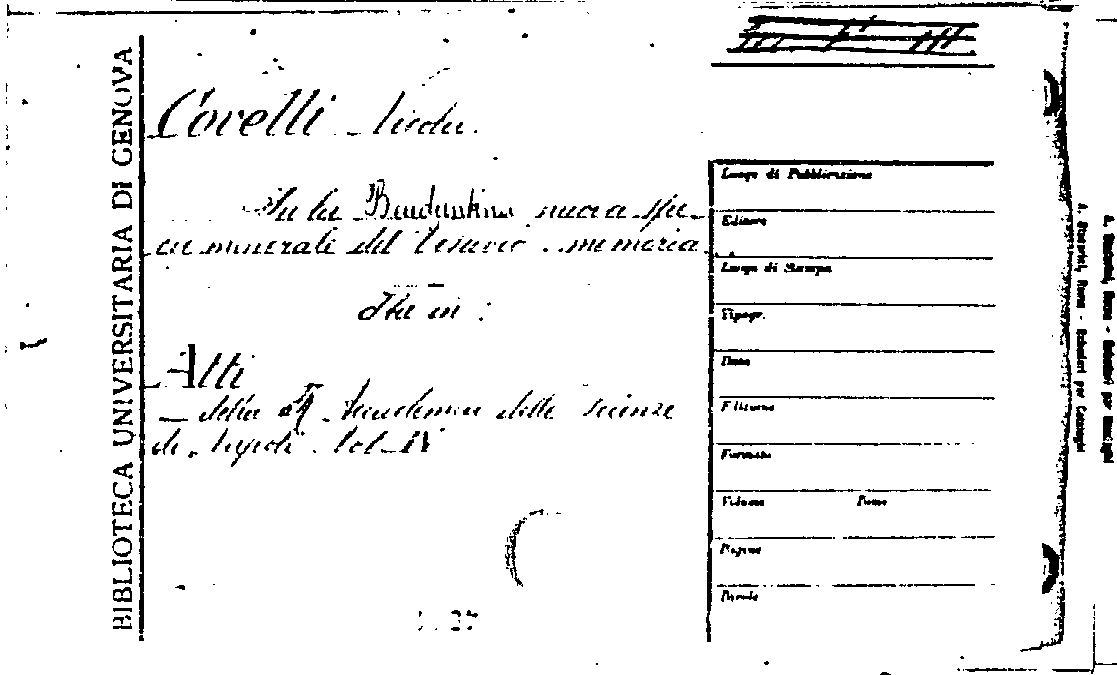 BIBLIOTECA UNIVERSITARIA DI GENOVA
Covelli
Su la nuova spe-
cie minerale del Vesuvio. memoria
Sta in:
Atti
della R. Accademia delle scienze
di Napoli. Vol. IV
27
Luogo di Pubblicazione
Editore
Luogo di Stampa
Tipogr.
Data
Edizione
Formato
Volume Tomo
Pagine
Parole
A. Staderini, Roma - Schedari per Cataloghi